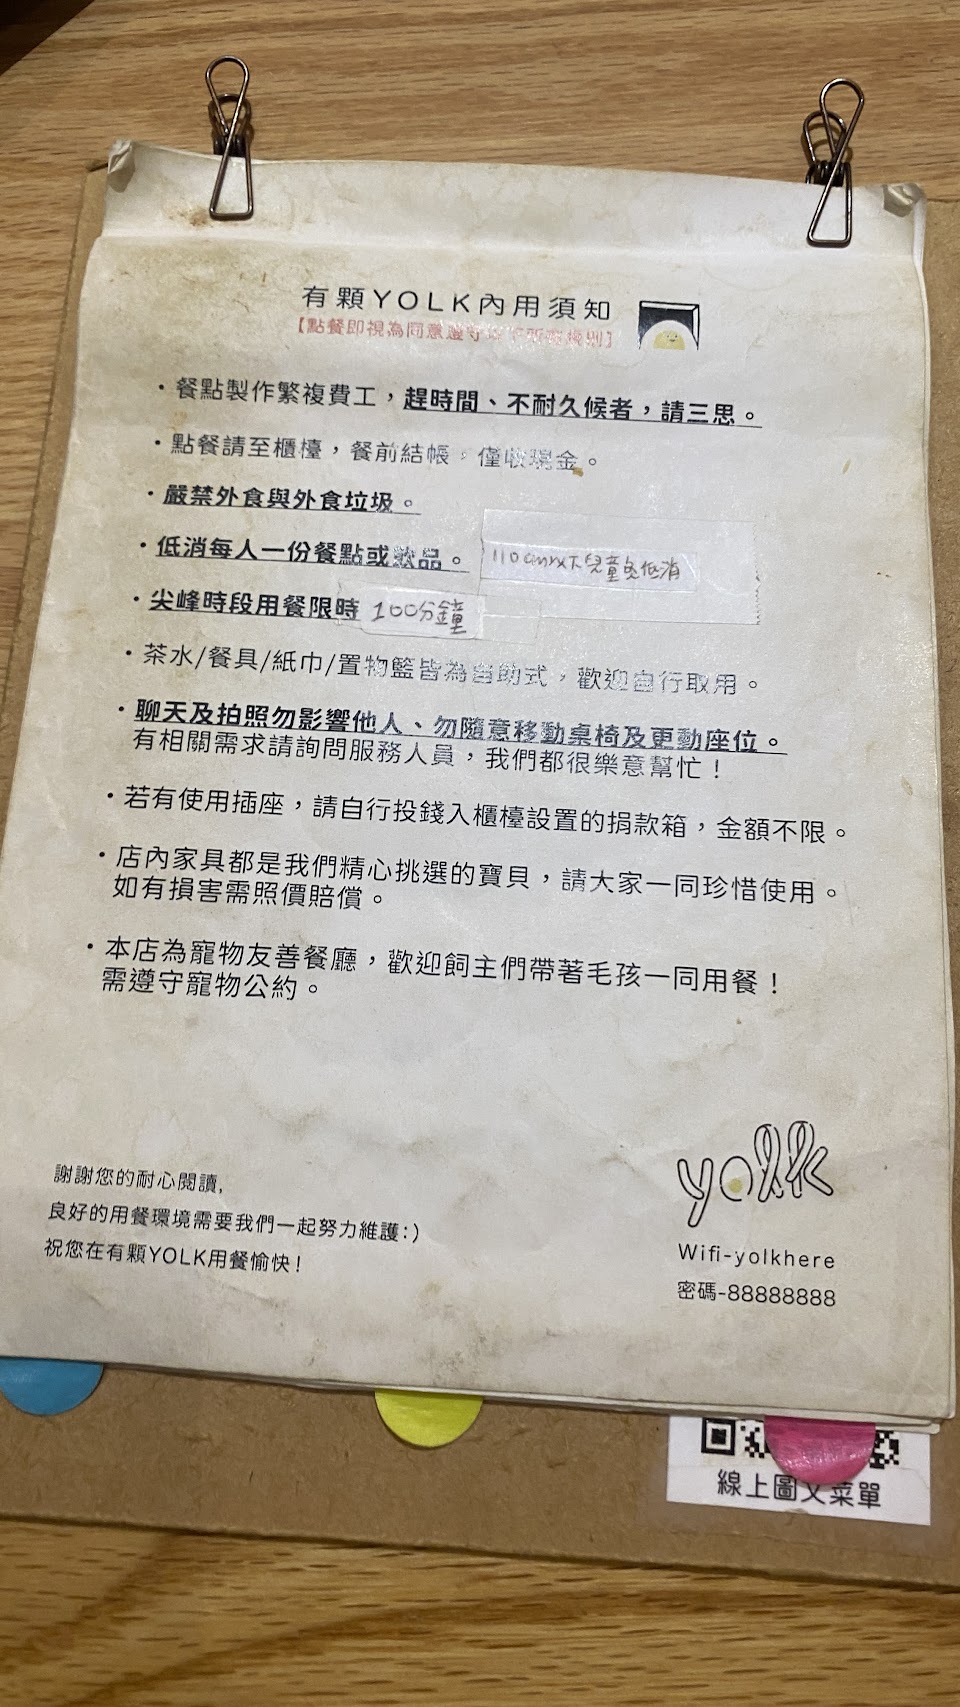 有顆YOLK內用須知
【點餐即視為同意遵守以下所有規則】
・餐點製作繁複費工，趕時間、不耐久候者，請三思。
・點餐請至櫃檯，餐前結帳。僅收現金。
・嚴禁外食與外食垃圾。
・低消每人一份餐點或飲品。 110cm以下兒童免低消
・尖峰時段用餐限時 100分鐘
・茶水/餐具/紙巾/置物籃皆為自助式，歡迎自行取用。
・聊天及拍照勿影響他人、勿隨意移動桌椅及更動座位。
有相關需求請詢問服務人員，我們都很樂意幫忙！
・若有使用插座，請自行投錢入櫃檯設置的捐款箱，金額不限。
・店內家具都是我們精心挑選的寶貝，請大家一同珍惜使用。
如有損害需照價賠償。
・本店為寵物友善餐廳，歡迎飼主們帶著毛孩一同用餐！
需遵守寵物公約。
謝謝您的耐心閱讀,
良好的用餐環境需要我們一起努力維護:)
祝您在有顆YOLK用餐愉快!
yolk
Wifi-yolkhere
密碼-88888888
線上圖文菜單